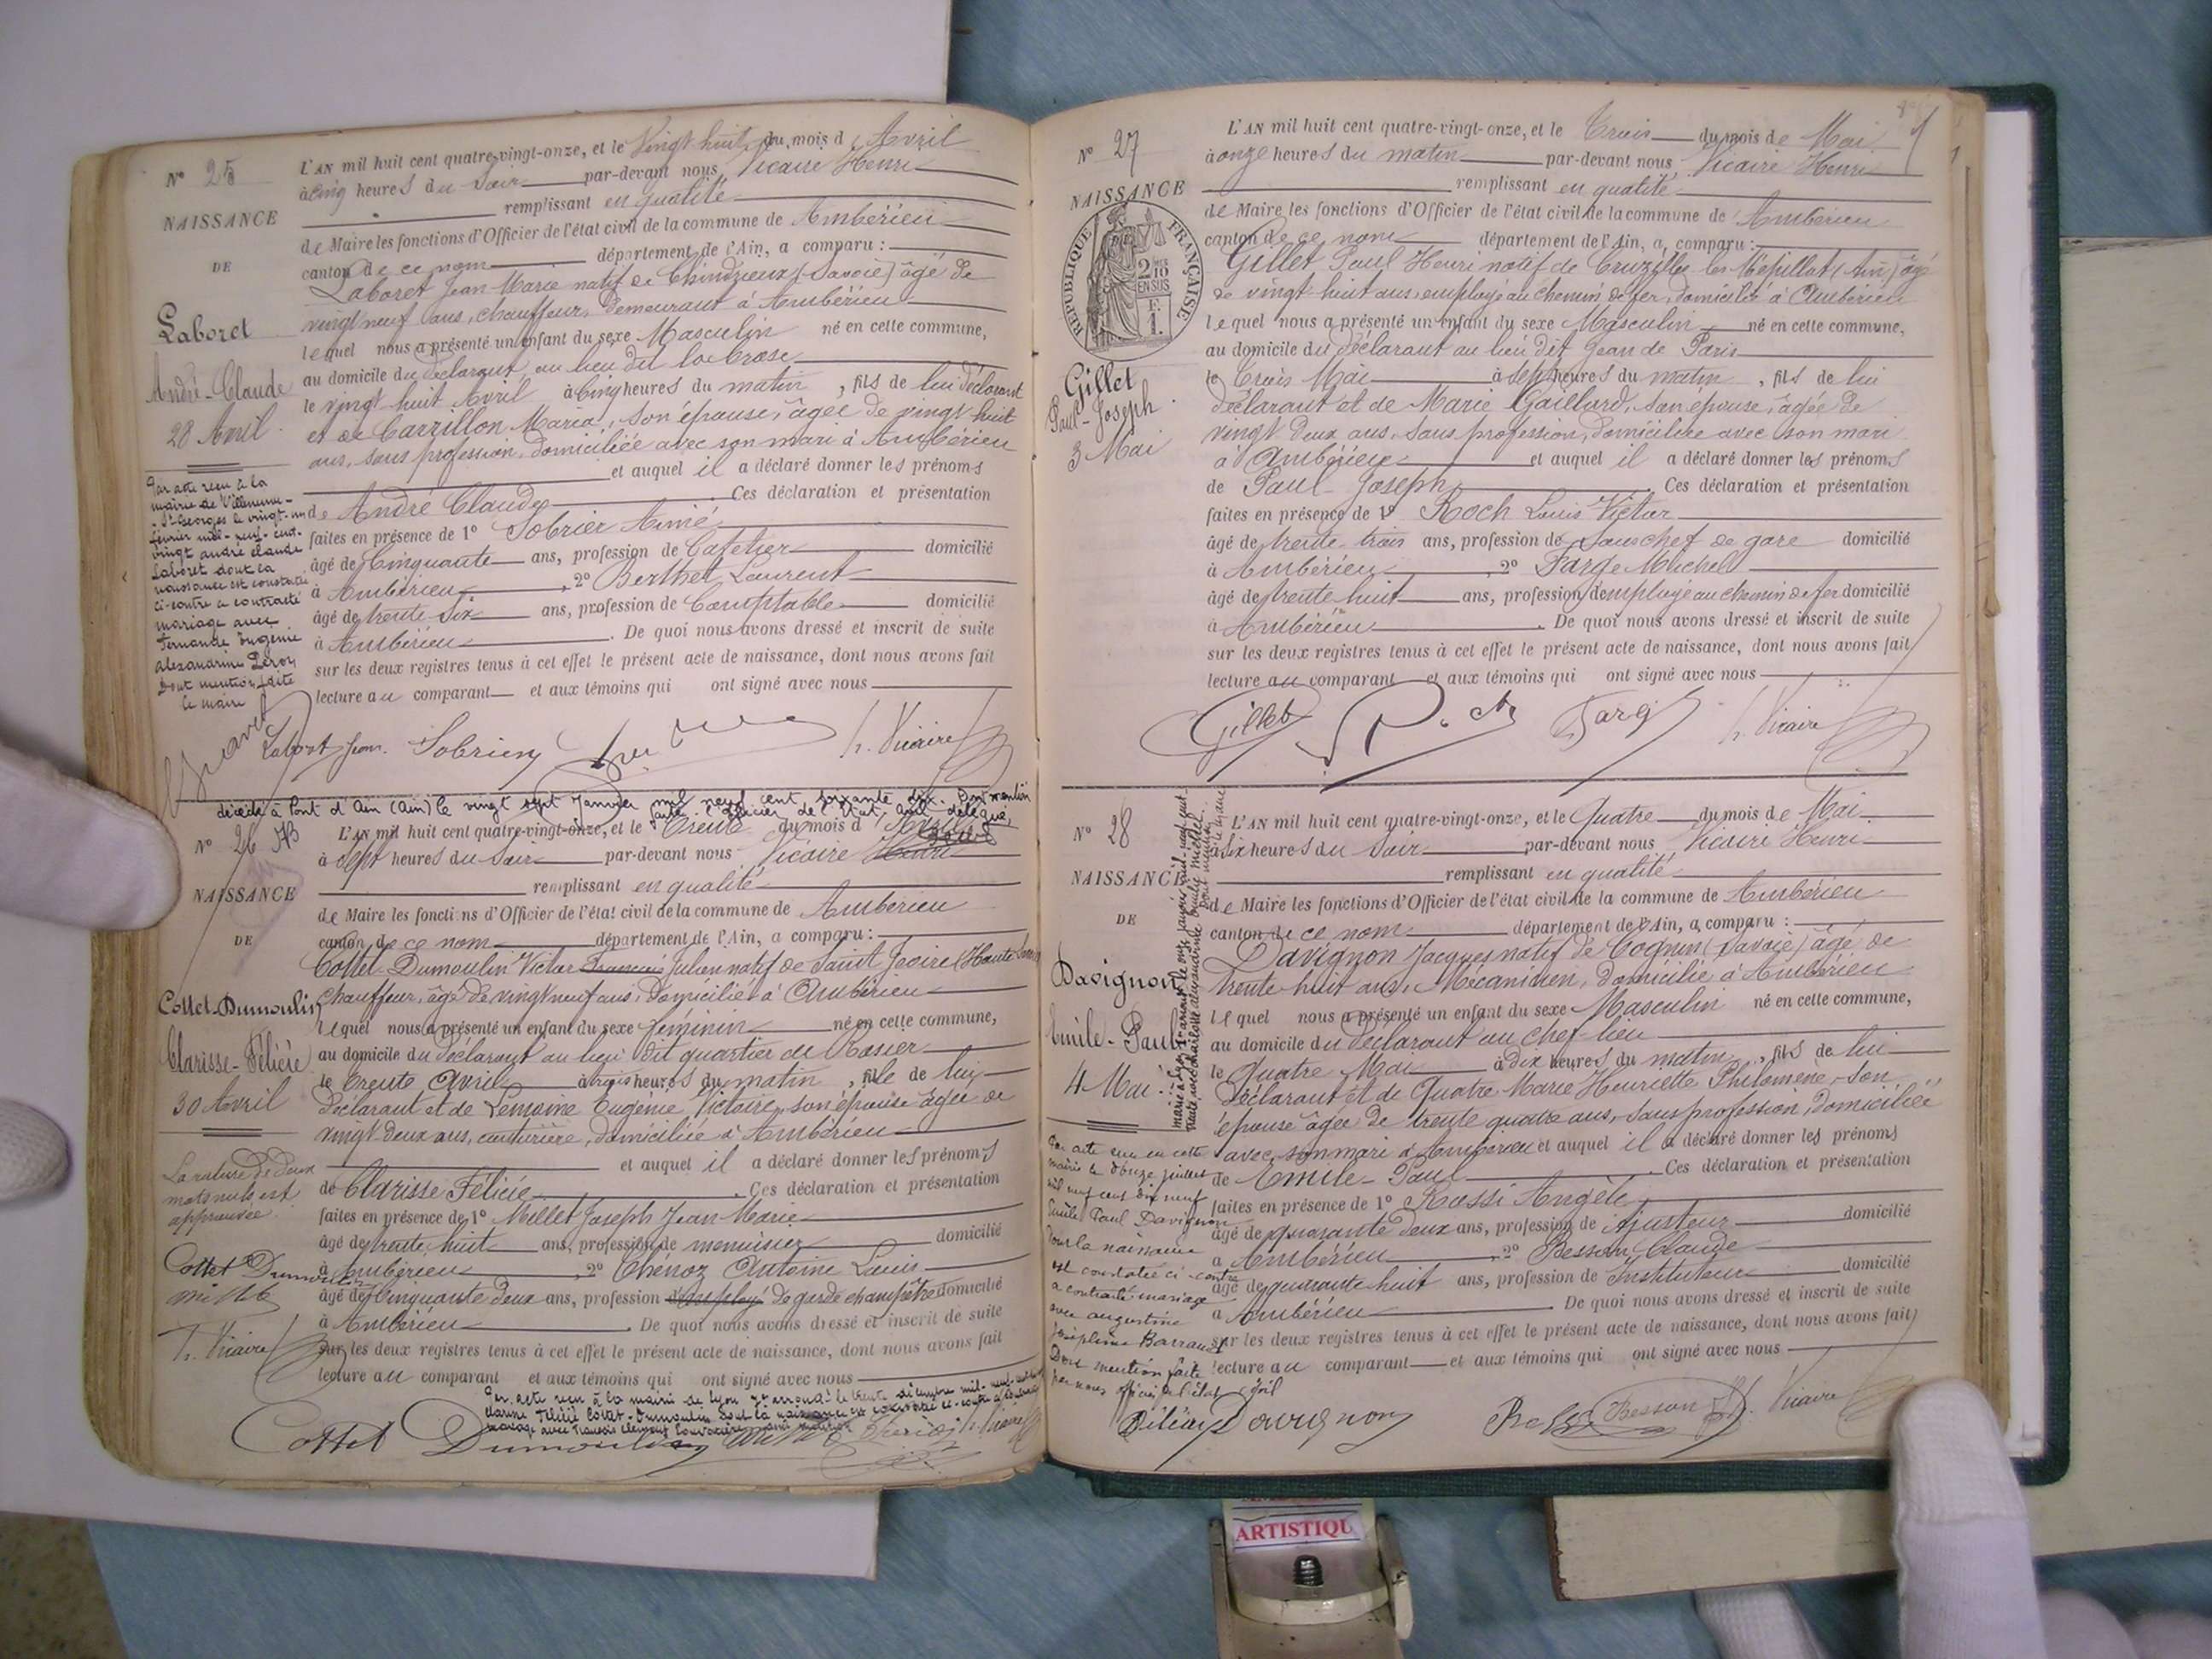 N° 25
NAISSANCE
DE
Laboret
André-Claude
28 Avril
Par acte reçu à la
mairie de Villeneuve-
-St-Georges le vingt-un
février mil-neuf-cent-
vingt andré claude
Laboret dont la
naissance est constatée
ci-contre a contracté
mariage avec
Fernande Eugénie
alexandrine Leroy
Dont mention faite
le maire
L'AN mil huit cent quatre-vingt-onze, et le Vingt huit du mois d'Avril
à cinq heures du soir par-devant nous Vicaire Henri
remplissant en qualité
de Maire les fonctions d'Officier de l'état civil de la commune de Ambérieu
canton de ce nom département de l'Ain, a comparu :
Laboret Jean Marie natif de Chindrieux (Savoie) âgé de
vingt neuf ans, chauffeur, demeurant à Ambérieu
lequel nous a présenté un enfant du sexe Masculin né en cette commune,
au domicile du déclarant, au lieu dit
le vingt huit Avril à cinq heures du matin, fils de lui déclarant
et de Carrillon Maria, son épouse, âgée de vingt huit
ans, sans profession, domiciliée avec son mari à Ambérieu
et auquel il a déclaré donner les prénoms
de André Claude Ces déclaration et présentation
faites en présence de 1° Sobrier Aimé
âgé de Cinquante ans, profession de Cafetier domicilié
à Ambérieu, 2° Berthet Laurent
âgé de trente six ans, profession de Comptable domicilié
à Ambérieu. De quoi nous avons dressé et inscrit de suite
sur les deux registres tenus à cet effet le présent acte de naissance, dont nous avons fait
lecture au comparant et aux témoins qui ont signé avec nous
Laboret Jean. Sobrier h. Vicaire
décédé à Pont d'Ain (Ain) le vingt sept Janvier mil neuf cent soixante dix. Dont mention
faite. L'Officier de l'Etat Civil délégué,
N° 26
NAISSANCE
DE
Cottet-Dumoulin
Clarisse-Félicie
30 Avril
La rature de deux
mots nuls est
approuvée
Cottet Dumoulin
h. Vicaire
L'AN mil huit cent quatre-vingt-onze, et le Trente du mois d'Avril
à sept heures du Soir par-devant nous Vicaire Henri
remplissant en qualité
de Maire les fonctions d'Officier de l'état civil de la commune de Ambérieu
canton de ce nom département de l'Ain, a comparu :
Cottet-Dumoulin Victor François Julien natif de Saint Jeoire (Haute
chauffeur, âgé de vingt neuf ans, domicilié à Ambérieu
lequel nous a présenté un enfant du sexe féminin né en cette commune,
au domicile du déclarant au lieu dit quartier du
le trente Avril à trois heures du matin, fille de lui
déclarant et de Lemoine Eugénie Victoire, son épouse âgée de
vingt deux ans, couturière, domiciliée à Ambérieu
et auquel il a déclaré donner les prénoms
de Clarisse Félicie Ces déclaration et présentation
faites en présence de 1° Millet Joseph Jean Marie
âgé de trente huit ans, profession de menuisier domicilié
à Ambérieu, 2° Chénoz Antoine Louis
âgé de Cinquante deux ans, profession d'employé de garde champêtre domicilié
à Ambérieu. De quoi nous avons dressé et inscrit de suite
sur les deux registres tenus à cet effet le présent acte de naissance, dont nous avons fait
lecture au comparant et aux témoins qui ont signé avec nous
Par acte reçu à la mairie de Lyon arrond. le trente décembre mil-neuf-cent
Félicie Cottet-Dumoulin dont la naissance est constatée ci-contre a contracté
mariage avec François Clément
Cottet Dumoulin h. Vicaire
N° 27
NAISSANCE
RÉPUBLIQUE FRANÇAISE
2/10 EN SUS
F. 1.
Gillet
Paul-Joseph
3 Mai
L'AN mil huit cent quatre-vingt-onze, et le Trois du mois de Mai
à onze heures du matin par-devant nous Vicaire Henri
remplissant en qualité
de Maire les fonctions d'Officier de l'état civil de la commune de Ambérieu
canton de ce nom département de l'Ain, a comparu :
Gillet Paul Henri natif de Cruzilles les Mépillat (Ain) âgé
de vingt huit ans, employé au chemin de fer, domicilié à Ambérieu
lequel nous a présenté un enfant du sexe Masculin né en cette commune,
au domicile du déclarant au lieu dit Jean de Paris
le Trois Mai à sept heures du matin, fils de lui
déclarant et de Marie Gaillard, son épouse, âgée de
vingt deux ans, sans profession, domiciliée avec son mari
à Ambérieu et auquel il a déclaré donner les prénoms
de Paul-Joseph. Ces déclaration et présentation
faites en présence de 1° Roch Louis Victor
âgé de trente trois ans, profession de sous chef de gare domicilié
à Ambérieu, 2° Farge Michel
âgé de trente huit ans, profession d'employé au chemin de fer domicilié
à Ambérieu. De quoi nous avons dressé et inscrit de suite
sur les deux registres tenus à cet effet le présent acte de naissance, dont nous avons fait
lecture au comparant et aux témoins qui ont signé avec nous
Gillet Roch Farge h. Vicaire
N° 28
NAISSANCE
DE
Davignon
Emile-Paul
4 Mai
Par acte reçu en cette
mairie le douze juillet
mil neuf cent dix neuf
Emile Paul Davignon
dont la naissance
est constatée ci-contre
a contracté mariage
avec augustine
joséphine Barraud
Dont mention faite
par nous officier de l'état civil
L'AN mil huit cent quatre-vingt-onze, et le Quatre du mois de Mai
à six heures du Soir par-devant nous Vicaire Henri
remplissant en qualité
de Maire les fonctions d'Officier de l'état civil de la commune de Ambérieu
canton de ce nom département de l'Ain, a comparu :
Davignon Jacques natif de Cognin (Savoie) âgé de
trente huit ans, Mécanicien, domicilié à Ambérieu
lequel nous a présenté un enfant du sexe Masculin né en cette commune,
au domicile du déclarant au chef-lieu
le Quatre Mai à Dix heures du matin, fils de lui
déclarant et de Quatre Marie Henriette Philomène, son
épouse âgée de trente quatre ans, sans profession, domiciliée
avec son mari à Ambérieu et auquel il a déclaré donner les prénoms
de Emile-Paul. Ces déclaration et présentation
faites en présence de 1° Rossi Angèle
âgé de quarante deux ans, profession de Ajusteur domicilié
à Ambérieu, 2° Besson Claude
âgé de quarante huit ans, profession de Instituteur domicilié
à Ambérieu. De quoi nous avons dressé et inscrit de suite
sur les deux registres tenus à cet effet le présent acte de naissance, dont nous avons fait
lecture au comparant et aux témoins qui ont signé avec nous
Davignon Rossi Besson h. Vicaire
ARTISTIQU